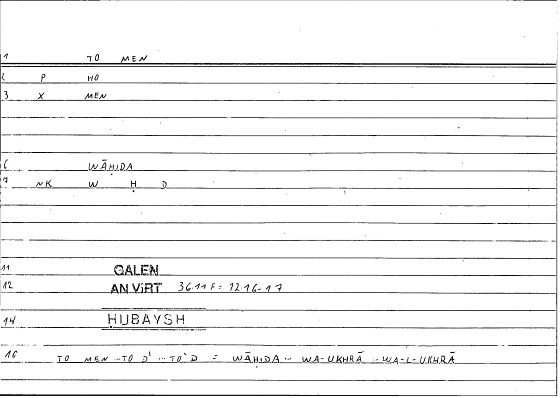 1 TO MEN
2 P HO
3 X MEN
6 WĀḤIDA
7 NK W Ḥ D
11 GALEN
12 AN VIRT 36-11 F = 12-16-17
14 ḤUBAYSH
16 TO MEN -- TO D' -- TO D = WĀḤIDA -- WA-UKHRĀ -- WA-L-UKHRĀ